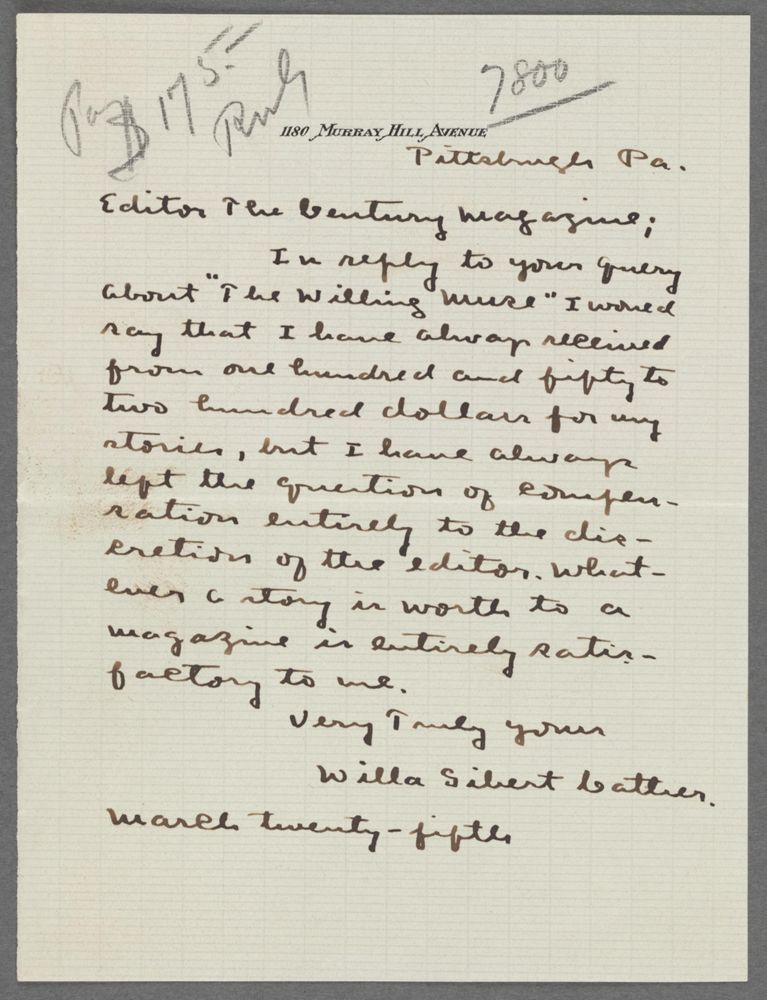 Pay $175.--
7800
1180 Murray Hill Avenue
Pittsburgh Pa.
Editor The Century Magazine;
In reply to your query
about "The Willing Muse" I would
say that I have alway received
from one hundred and fifty to
two hundred dollars for my
stories, but I have always
left the question of compen-
sation entirely to the dis-
cretion of the editor. What-
ever a story is worth to a
magazine is entirely satis-
factory to me.
Very Truly yours
Willa Sibert Cather.
March twenty-fifth